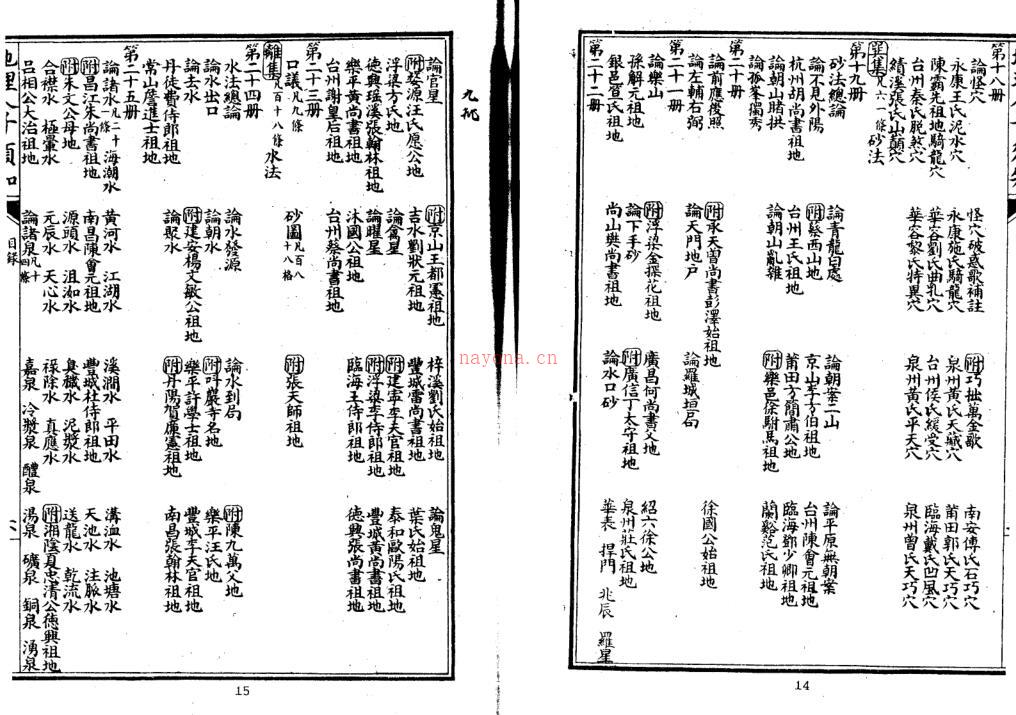 第十八册
論怪穴
怪穴破惑歌補註
附巧拙萬金歌
南安傅氏石巧穴
永康王氏泥水穴
永康施氏騎龍穴
泉州黃氏天藏穴
莆田郭氏天巧穴
陳霸先祖地騎龍穴
華容劉氏曲乳穴
台州侯氏緩受穴
臨海戴氏凹風穴
台州秦氏脫煞穴
華容黎氏特異穴
泉州黃氏平天穴
泉州曾氏天巧穴
績溪張氏山巔穴
巽集凡六一條砂法
第十九册
砂法總論
論青龍白虎
論朝案二山
論平原無朝案
論不見外陽
附蔡西山地
京山李方伯祖地
台州陳會元祖地
杭州胡尚書祖地
台州王氏祖地
莆田方簡肅公地
臨海鄧少卿祖地
論朝山賭拱
論朝山亂雜
附樂邑徐駙馬祖地
蘭谿范氏祖地
論孤峯獨秀
第二十册
論前應後照
附承天曾尚書彭澤始祖地
論羅城垣局
徐國公始祖地
論左輔右弼
論天門地户
第二十一册
論樂山
附浮梁金探花祖地
廣昌何尚書父地
紹六徐公地
孫解元祖地
論下手砂
附廣信丁太守祖地
泉州莊氏祖地
銀邑宣氏祖地
尚山樊尚書祖地
論水口砂
華表 捍門 北辰 羅星
第二十二册
14
九執
論官星
附京山王都憲祖地
梓溪劉氏始祖地
論鬼星
附婺源汪氏愿公地
吉水劉狀元祖地
豐城雷尚書祖地
葉氏始祖地
浮梁方氏地
論禽星
附建寧李天官祖地
泰和歐陽氏祖地
德興瑶溪張翰林祖地
論曜星
附浮梁李侍郎祖地
豐城黃尚書祖地
樂平黃尚書祖地
沐國公祖地
臨海王侍郎祖地
德興張尚書祖地
台州謝皇后祖地
台州蔡尚書祖地
第二十三册
口議凡九條
砂圖凡百八十八格
附張天師祖地
離集凡百十八條水法
第二十四册
水法總論
論水發源
論水到局
附陳九萬父地
論水出口
論朝水
附叫巖寺名地
樂平汪氏地
論去水
附建安楊文敏公祖地
樂平許學士祖地
豐城李天官祖地
丹徒費侍郎祖地
論聚水
附丹陽賀廉憲祖地
南昌張翰林祖地
常山詹進士祖地
第二十五册
論諸水凡二十一條 海潮水
黃河水 江湖水
溪澗水 平田水
溝洫水 池塘水
附昌江朱尚書祖地
南昌陳會元祖地
豐城杜侍郎祖地
天池水 注脈水
附朱文公母地
源頭水 沮洳水
臭穢水 泥漿水
送龍水 乾流水
合襟水 極暈水
元辰水 天心水
祿除水 真應水
附湘陰夏忠清公德興祖地
呂相公大治祖地
論諸泉凡十四條
嘉泉 冷漿泉 醴泉
湯泉 礦泉 銅泉 湧泉
目錄
15
nayona.cn